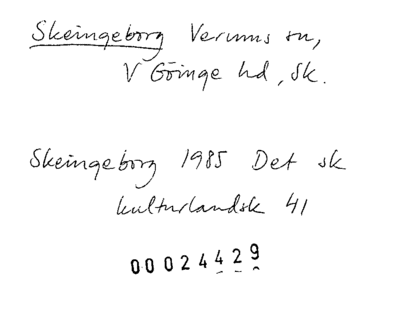 Skeingeborg Verums sn,
V Göinge hd, Sk.
Skeingeborg 1985 Det sk
kulturlandsk 41
00024429